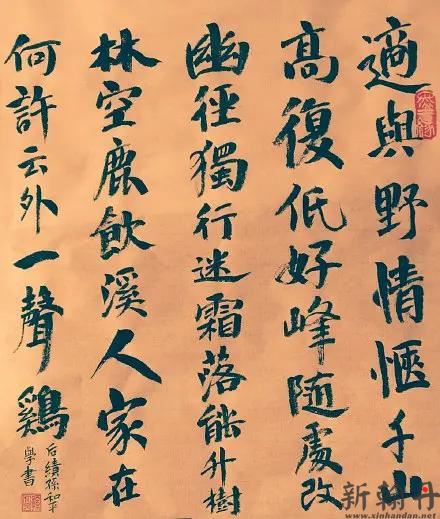 適與野情愜千山
高復低好峰隨處改
幽徑獨行迷霜落熊升樹
林空鹿飲溪人家在
何許云外一聲鷄
后績孫和平
學書
新翰丹
www.xinhandan.net